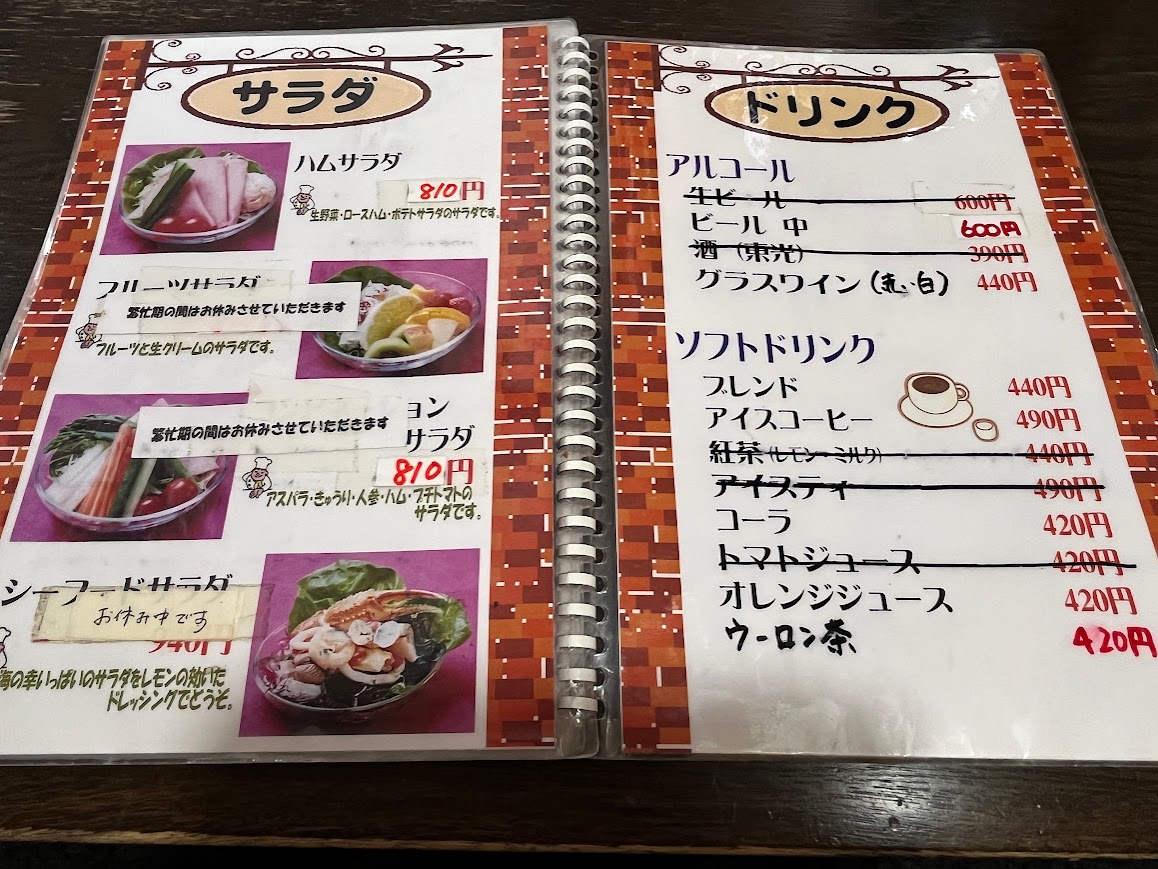 サラダ
ハムサラダ
810円
生野菜・ロースハム・ポテトサラダのサラダです。
フルーツサラダ
繁忙期の間はお休みさせていただきます
フルーツと生クリームのサラダです。
ョン
繁忙期の間はお休みさせていただきます
サラダ
810円
アスパラ・きゅうり・人参・ハム・プチトマトの
サラダです。
シーフードサラダ
お休み中です
940円
海の幸いっぱいのサラダをレモンの効いた
ドレッシングでどうぞ。
ドリンク
アルコール
生ビール 600円
ビール 中 600円
酒（東光） 390円
グラスワイン（赤い白） 440円
ソフトドリンク
ブレンド 440円
アイスコーヒー 490円
紅茶（レモン・ミルク） 440円
アイスティ 490円
コーラ 420円
トマトジュース 420円
オレンジジュース 420円
ウーロン茶 420円